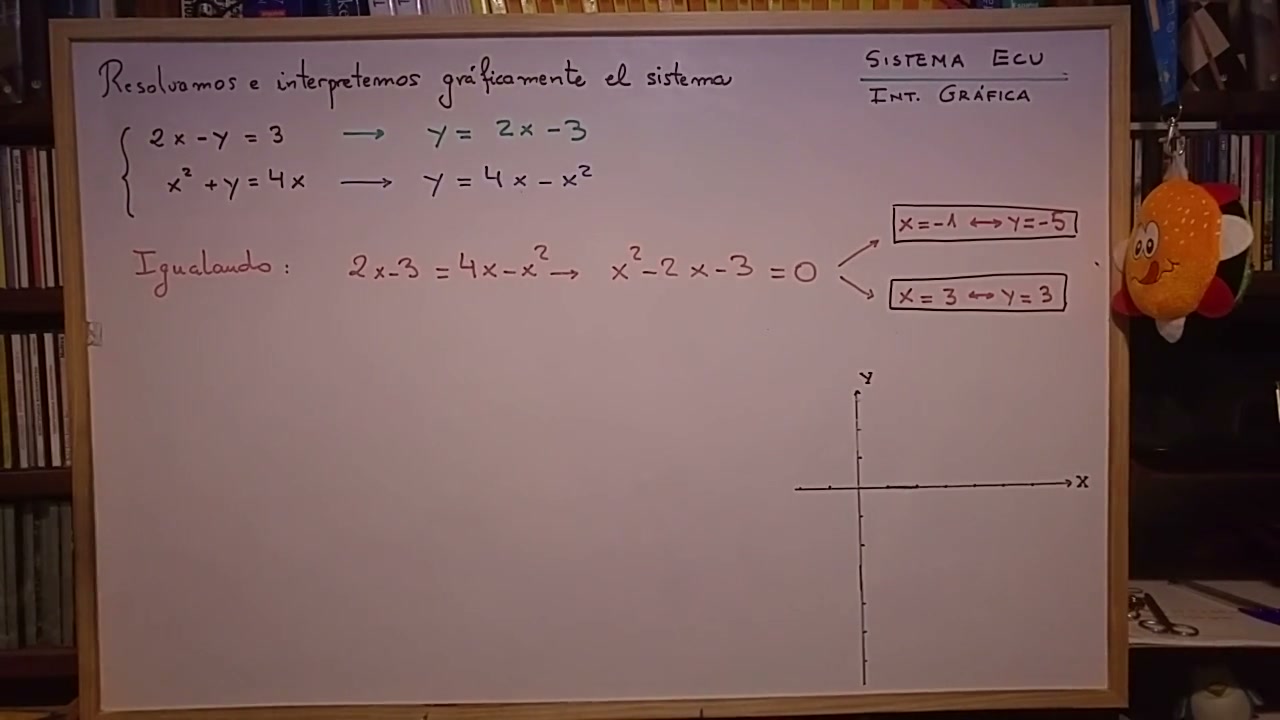 Resolvamos e interpretemos gráficamente el sistema
SISTEMA ECU
INT. GRÁFICA
2x - y = 3 → y = 2x - 3
x² + y = 4x → y = 4x - x²
Igualando: 2x - 3 = 4x - x² → x² - 2x - 3 = 0
x = -1 ↔ y = -5
x = 3 ↔ y = 3
Y
X